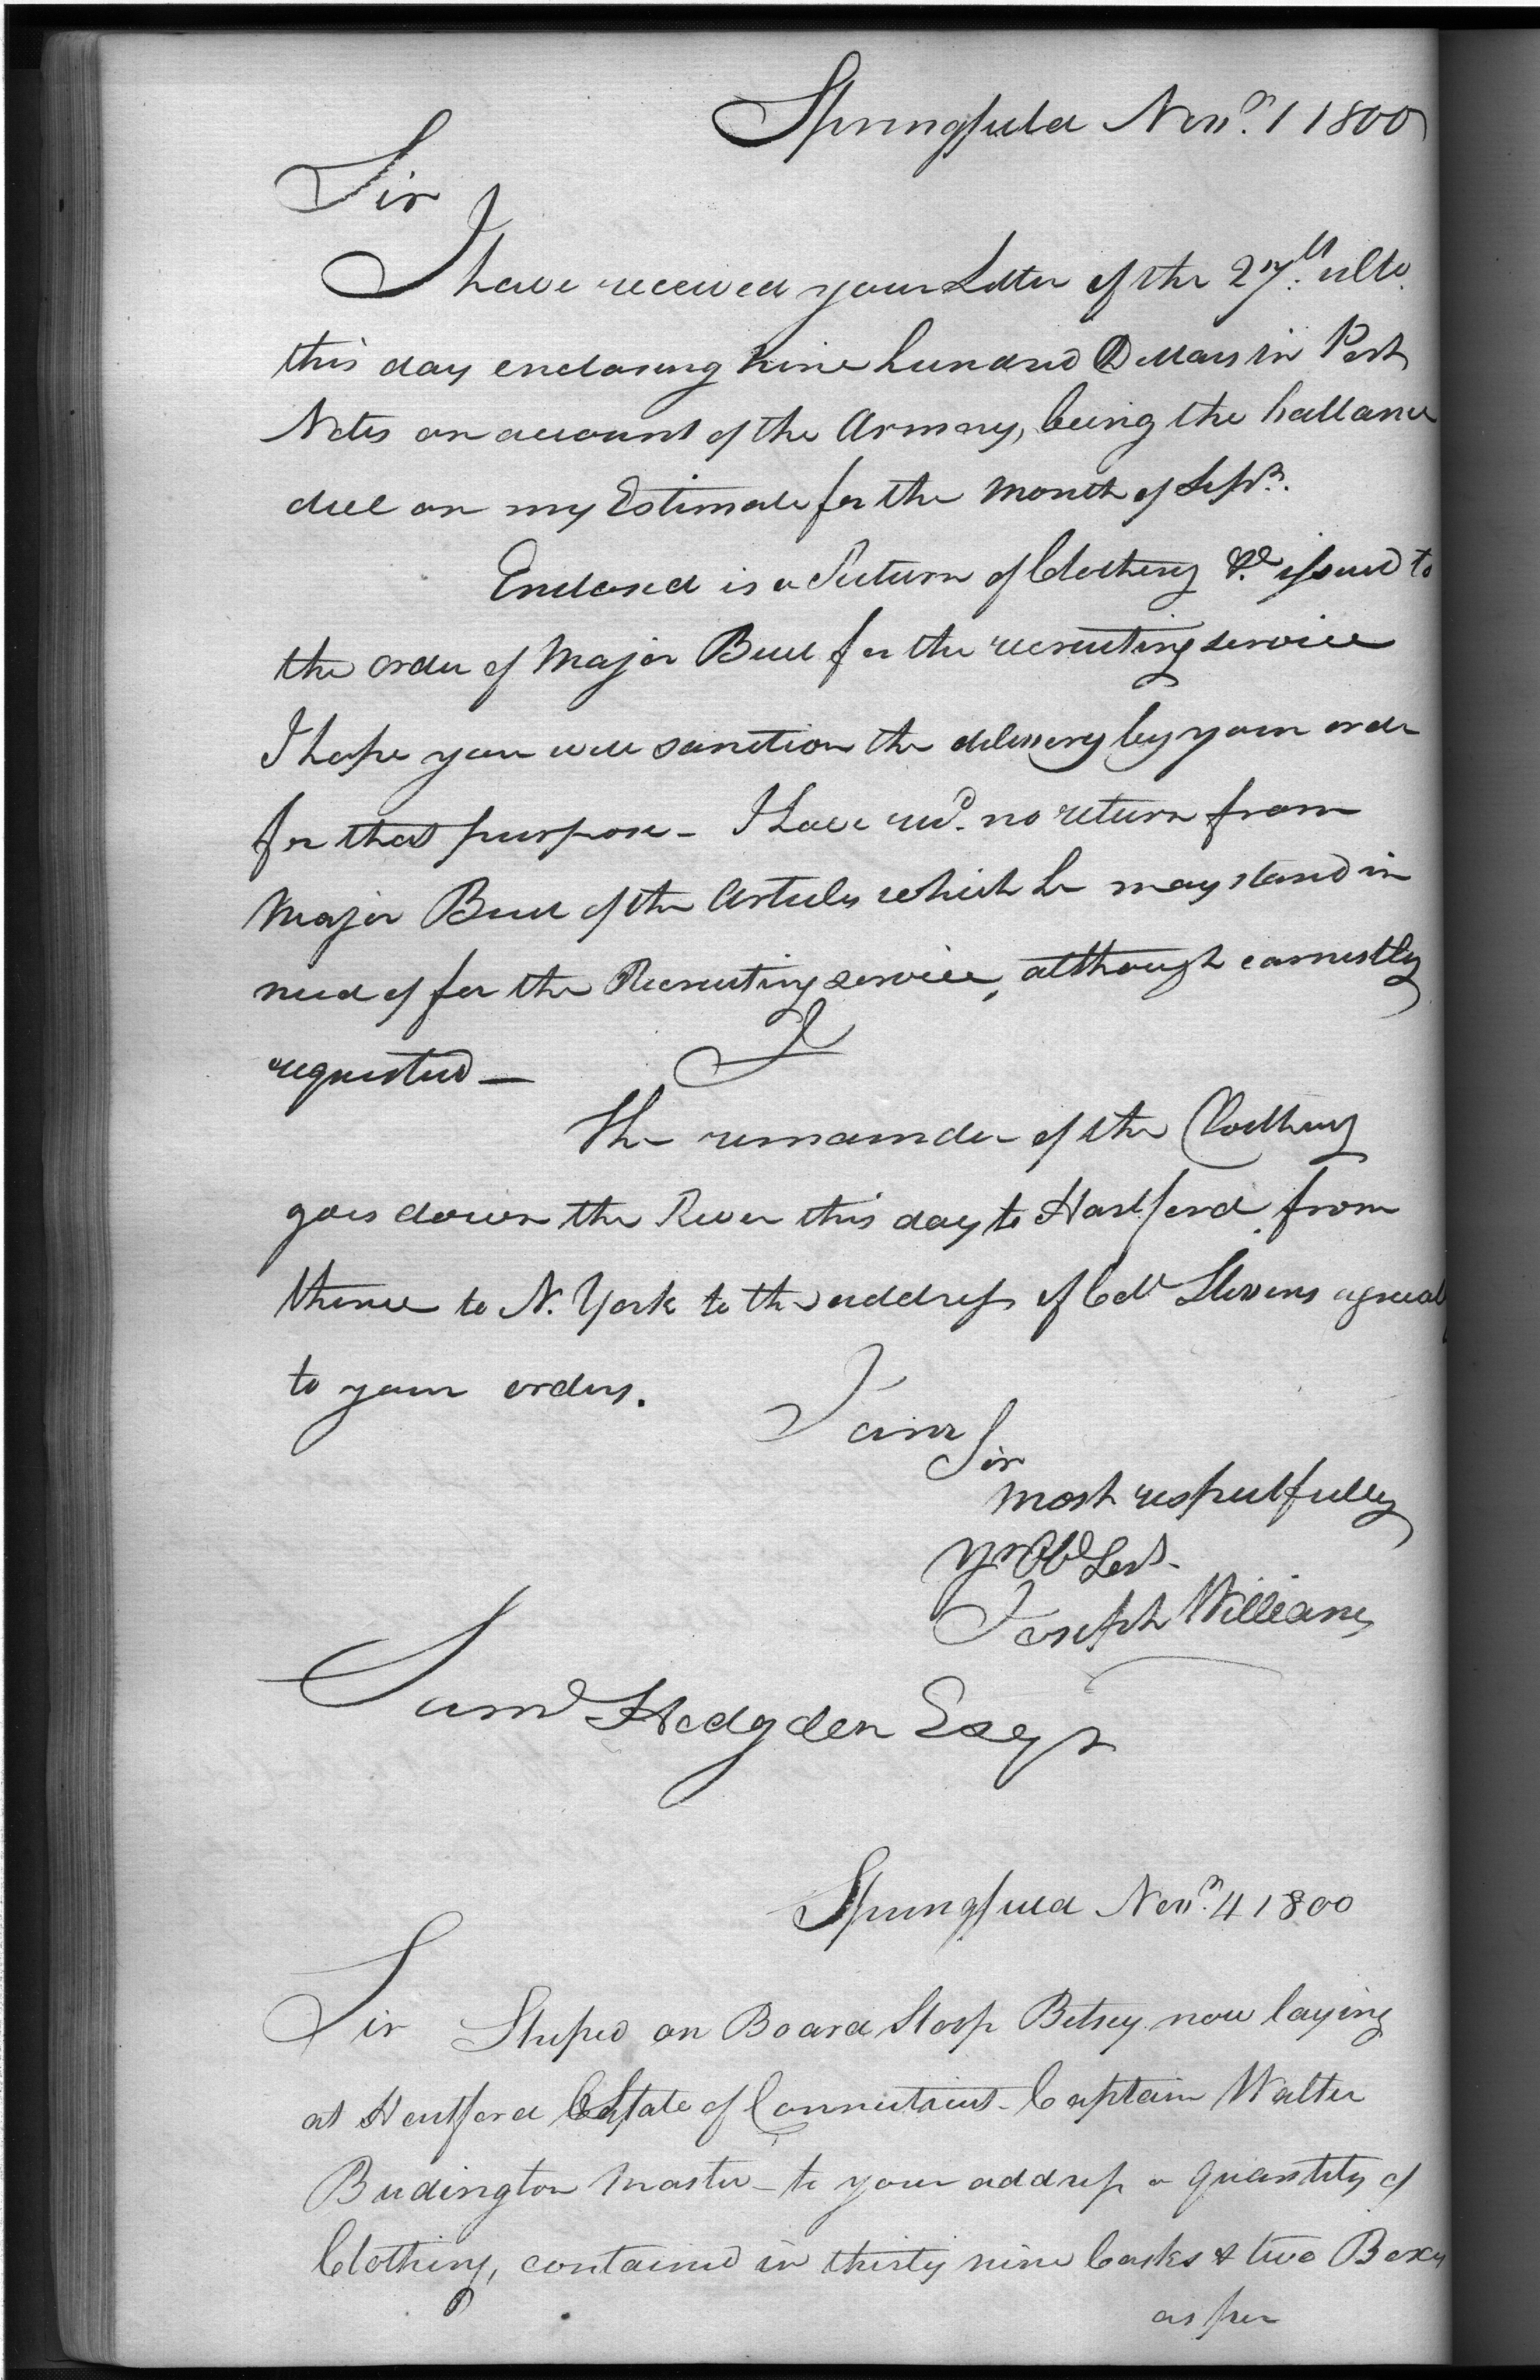 Springfield Novr. 1 1800
Sir
I have received your Letter of the 27th. ulto.
this day enclosing nine hundred Dollars in Post
Notes on account of the Armory, being the ballance
due on my Estimate for the Month of Sepr.
Enclosed is a Return of Clothing &c issued to
the order of Major Buell for the recruiting service
I hope you will sanction the delivery by your order
for that purpose - I have recd. no return from
Major Buell of the Articles which he may stand in
need of for the Recruiting service, although earnestly
requested —
The remainder of the Clothing
goes down the River this day to Hartford from
thence to N. York to the address of Coll Stevens agreeabl
to your orders.
I am
Sir
most respectfully
yr Obd Servt.
Joseph Williams
Saml Hodgden Esqr
Springfield Novr. 4 1800
Sir Shiped on Board Sloop Betsey now laying
at Hartford State of Connecticut - Captain Walter
Budington Master - to your address a quantity of
Clothing, contained in thirty nine Casks & two Boxes
as per